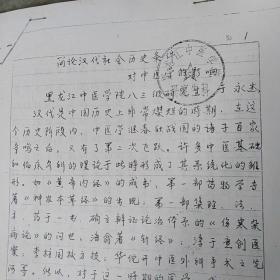 1
简论汉代社会历史条件
对中医学的影响
黑龙江中医学院八三级研究生 于永杰
汉代是中国历史上非常灿烂的时期，在这
个历史阶段内，中医学继春秋战国的诸子百家
争鸣之后，又有了第二次飞跃，中医学的基础
和临床各科的理论于此时形成了其系统化的雏
形。如《黄帝内经》的成书，第一部药物学专
著《神农本草经》的出现，第一部集理、法、
方、药于一书，确立辨证论治体系的《伤寒杂
病论》的问世，涪翁著《针经》，淳于意创医
案，李柱国校方技，华佗开中医外科手术之先
河等。所以，对于这一时期的医学